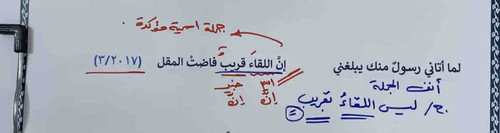 جملة اسمية مؤكدة
لما أتاني رسولٌ منك يبلغني إنَّ اللقاءَ قريبٌ فاضتُ المقل (٣/٢٠١٧)
اسم خبر
إنَّ إنَّ
أنفِ الجملة
ج/ ليس اللقاءُ بقريب